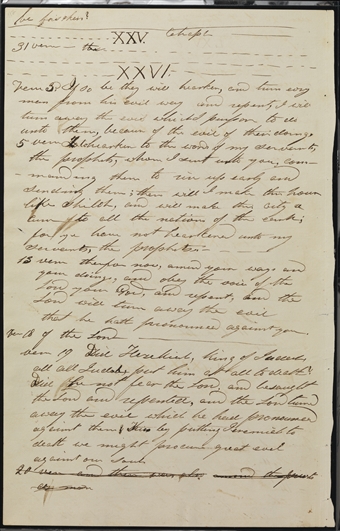 be forsaken?
XXV. chapt.
31 vern — the
XXVI.
Vern 3. If so be they will hearken, and turn evry
man from his evil way and repent, I will
turn away the evil which I purpose to do
unto them, because of the evil of their doings.
5 vern To hearken to the word of my servants,
the prophets, whom I sent unto you, com-
manding them to rise up early and
sending them; then will I make this house
like Shiloh, and will make this city a
curse to all the nations of the earth;
for ye have not hearkened unto my
servants, the prophets.—
13 vern therefor now, amend your ways and
your doings, and obey the voice of the
Lord your God, and repent, and the
Lord will turn away the evil
that he hath pronounced against you.
of the Lord
vern 19 Did Hezekiah, king of Judah,
all all Judah put him at all to death?
Did he not fear the Lord, and besought
the Lord and repented, and the Lord turned
away the evil which he had pronounced
against them? Thus by putting Jeremiah to
death we might procure great evil
against our souls
20 vern and there was also